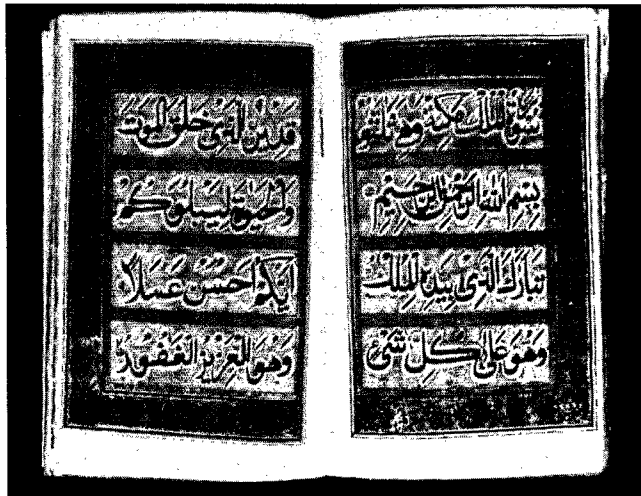 سورة الملك مكية وهي ثلثون
بِسْمِ اللهِ الرَّحْمٰنِ الرَّحِيْمِ
تَبَارَكَ الَّذِی بِيَدِهِ الْمُلْكُ
وَهُوَ عَلٰی كُلِّ شَیْءٍ
قَدِيْرٌ الَّذِی خَلَقَ الْمَوْتَ
وَالْحَيٰوةَ لِيَبْلُوَكُمْ
اَيُّكُمْ اَحْسَنُ عَمَلًا
وَهُوَ الْعَزِيْزُ الْغَفُوْرُ